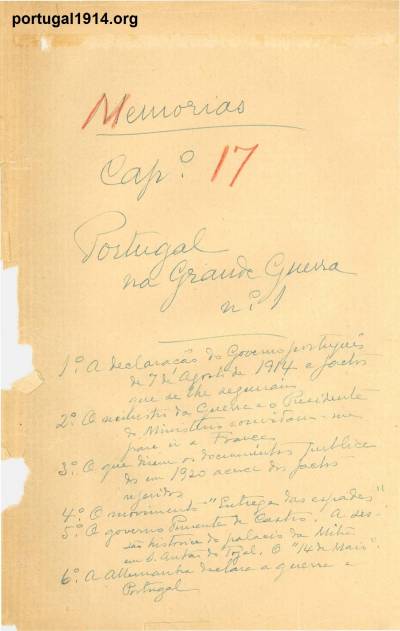 portugal1914.org
Memorias
Capº. 17
Portugal
na Grande Guerra
n.º 1
1.º A declaração do Governo português
de 7 de Agosto de 1914 e factos
que se lhe seguiram
2.º O ministro da Guerra e o Presidente
do Ministério convidam-me
para ir a França
3.º O que dizem os documentos publica
dos em 1920 acerca dos factos
referidos
4.º O movimento "Entrega das espadas"
5.º O governo Pimenta de Castro. A ses-
são historica do palacio da Mitra
em S. Antão do Tojal. O "14 de Maio".
6.º A Allemanha declara a guerra a
Portugal